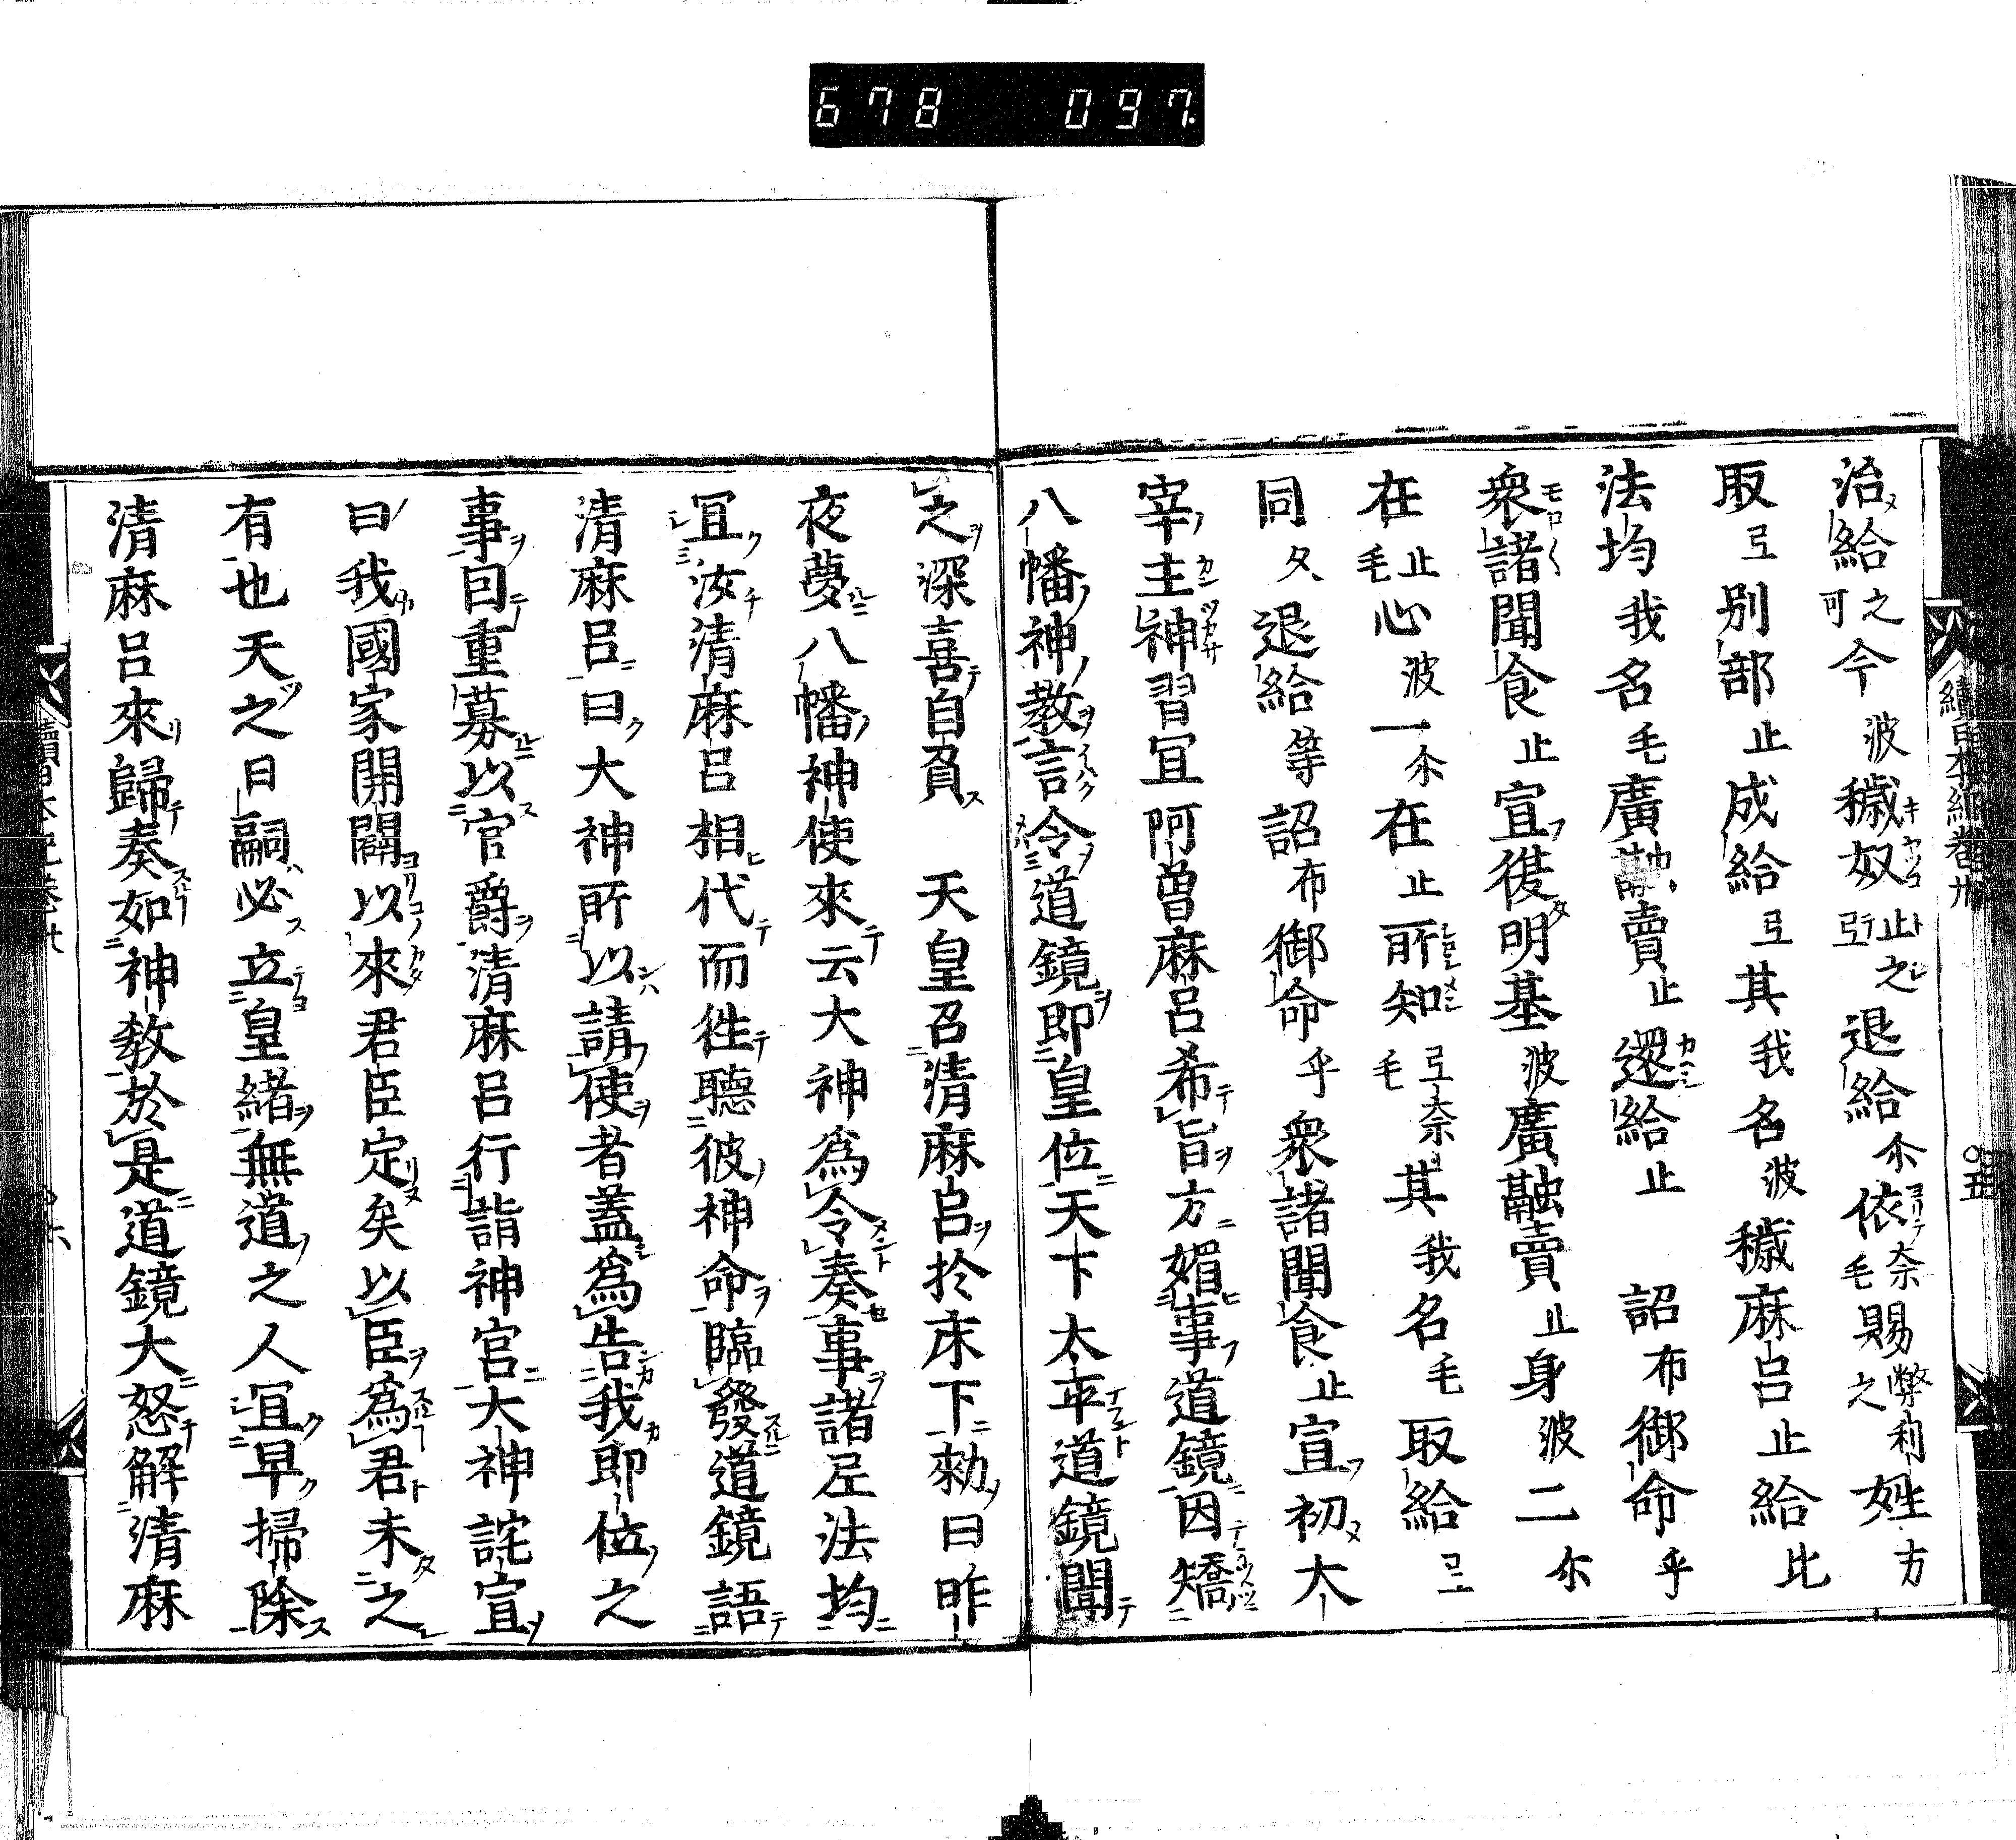 678 097.
續日本紀卷卅 〇五
治給之可今波穢奴止之弖退給尓依弖奈毛賜弊利之姓方
取弖別部止成給弖其我名波穢麻呂止給比
法均我名毛廣虫賣止還給止 詔布御命乎
衆諸聞食止宣復明基波廣融賣止身波二尓
在止毛心波一尓在止所知弖奈毛其我名毛取給弖
同久退給等詔布御命乎衆諸聞食止宣初大
宰主神習宜阿曾麻呂希旨方媚事道鏡因矯
八幡神教言令道鏡即皇位天下太平道鏡聞
之深喜自負 天皇召清麻呂於床下勅曰昨
夜夢八幡神使來云大神爲令奏事諸尼法均
宜汝清麻呂相代而徃聽彼神命臨發道鏡語
清麻呂曰大神所以請使者蓋爲告我即位之
事因重募以官爵清麻呂行詣神宮大神詫宣
曰我國家開闢以來君臣定矣以臣爲君未之
有也天之日嗣必立皇緒無道之人宜早掃除
清麻呂來歸奏如神教於是道鏡大怒解清麻